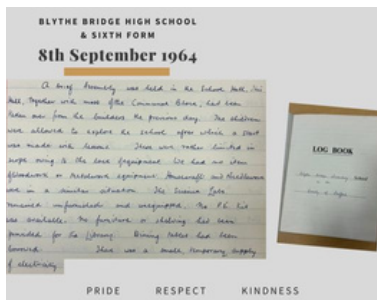 BLYTHE BRIDGE HIGH SCHOOL
& SIXTH FORM
8th September 1964
A brief Assembly was held in the School Hall. This
Hall, together with most of the Communal Block, had been
taken over from the builders the previous day. The children
were allowed to explore the school after which a start
was made with lessons. These were rather limited in
scope owing to the lack of equipment. We had no item
of woodwork or metalwork equipment. Housecraft and Needlework
are in a similar situation. The Science Labs
remained unfurnished and unequipped. No P.E. Kit
was available. No furniture or shelving had been
provided for the Library. Dining tables had been
borrowed. There was a small, temporary supply
of electricity.
LOG BOOK
PRIDE RESPECT KINDNESS